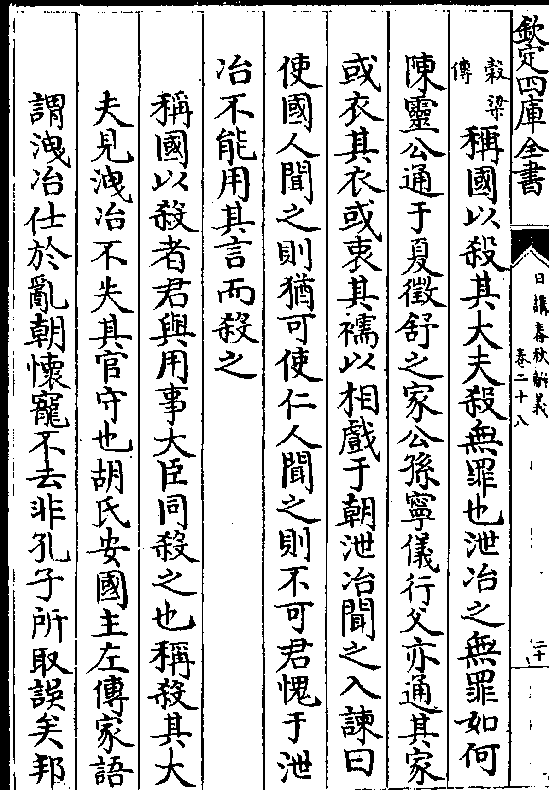 欽定四庫全書
日講春秋解義
卷二十八
二十
穀梁傳
稱國以殺其大夫殺無罪也泄冶之無罪如何
陳靈公通于夏徵舒之家公孫寧儀行父亦通其家
或衣其衣或衷其襦以相戲于朝泄冶聞之入諫曰
使國人聞之則猶可使仁人聞之則不可君愧于泄
冶不能用其言而殺之
稱國以殺者君與用事大臣同殺之也稱殺其大
夫見洩冶不失其官守也胡氏安國主左傳家語
謂洩冶仕於亂朝懷寵不去非孔子所取誤矣邦